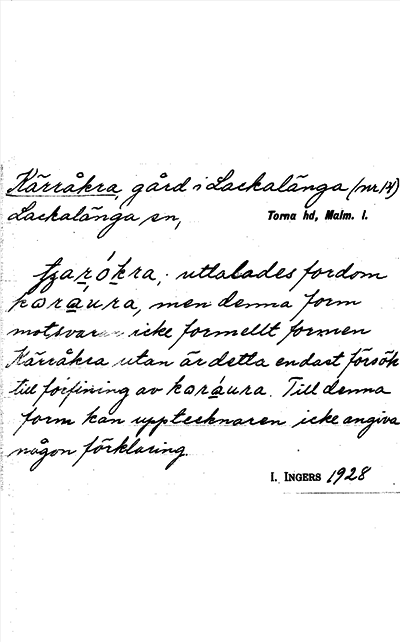 Kärråkra, gård i Lackalänga (nr 14)
Lackalänga sn, Torna hd, Malm. l.
ţʒarókra, uttalades fordom
karaura, men denna form
motsvarar icke formellt formen
Kärråkra utan är detta endast försök
till förfining av karáura. Till denna
form kan upptecknaren icke angiva
någon förklaring.
I. INGERS 1928